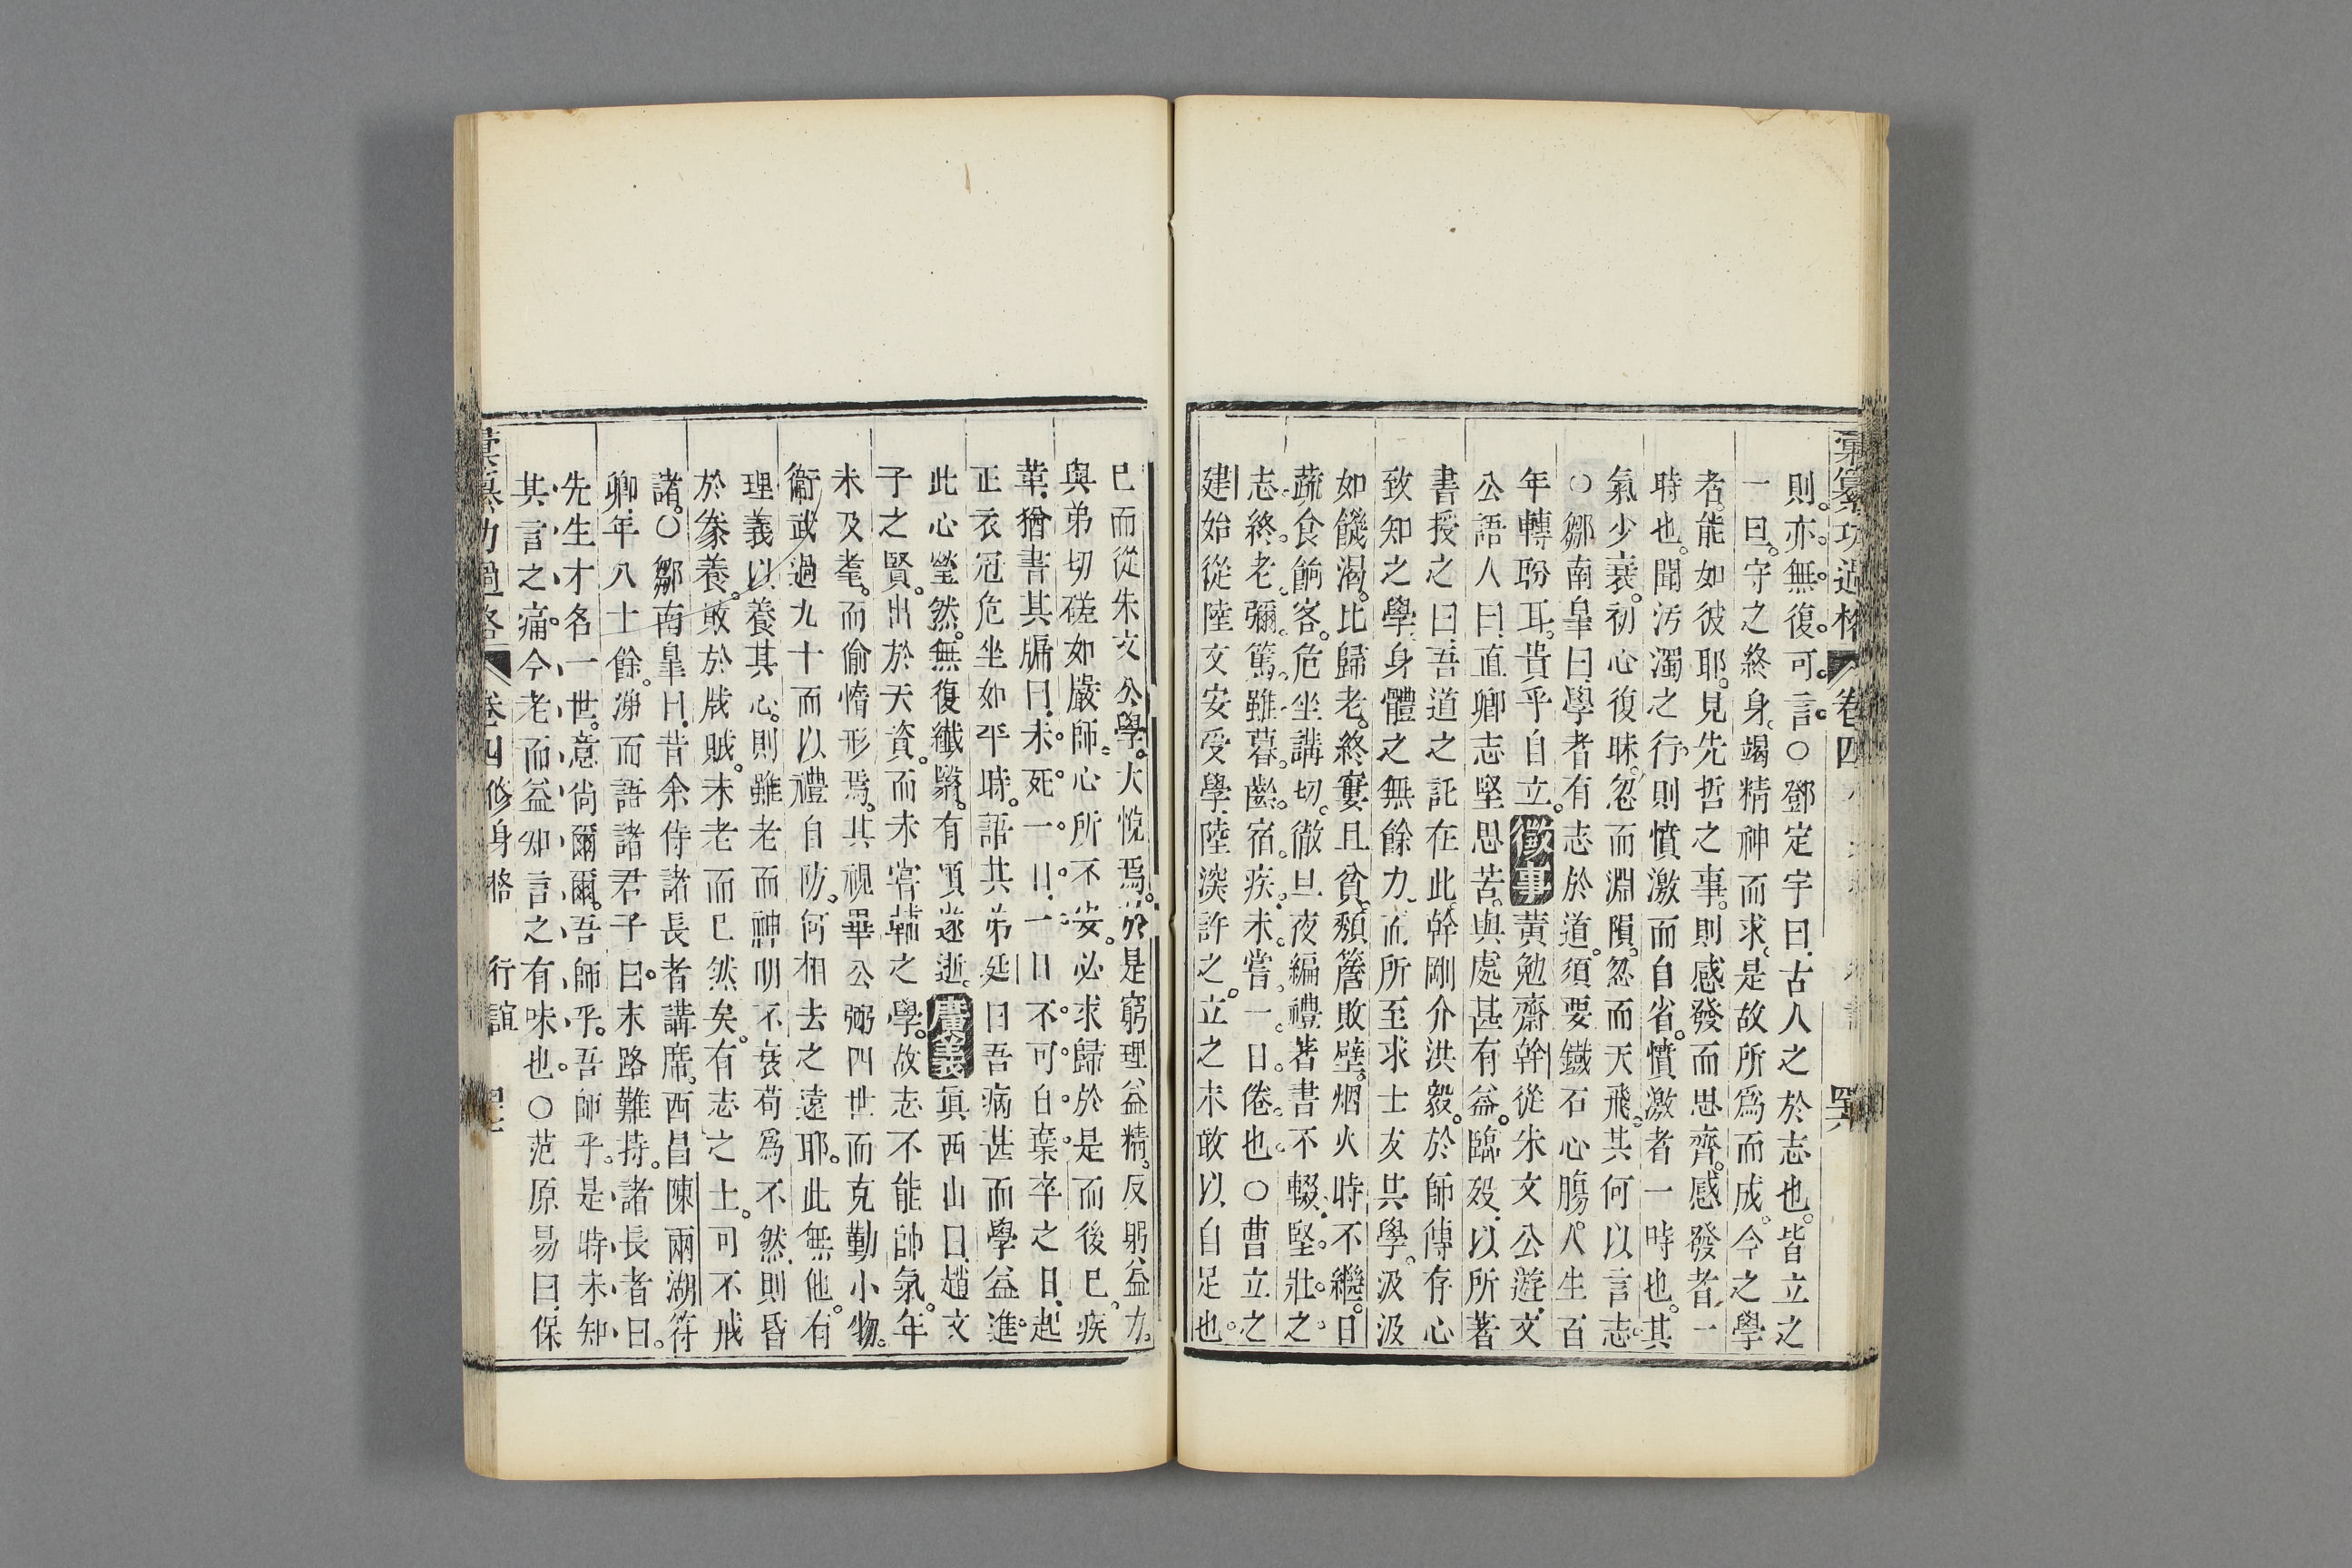 彙纂功過格 卷四 罣
則亦無復可言○鄧定宇曰古人之於志也皆立之
一曰守之終身竭精神而求是故所爲而成今之學
者能如彼耶見先哲之事則感發而思齊感發者一
時也聞汚濁之行則憤激而自省憤激者一時也其
氣少衰初心復昧忽而淵隕忽而天飛其何以言志
○鄒南臯曰學者有志於道須要鐵石心膓人生百
年轉盼耳貴乎自立徵事黃勉齋幹從朱文公遊文
公語人曰直卿志堅思苦與處甚有益臨歿以所著
書授之曰吾道之託在此幹剛介洪毅於師傳存心
致知之學身體之無餘力而所至求士友共學汲汲
如饑渴比歸老終窶且貧頽簷敗壁烟火時不繼日
蔬食餉客危坐講切徹旦夜編禮著書不輟堅壯之
志終老彌篤雖暮齡宿疾未嘗一日倦也○曹立之
建始從陸文安受學陸深許之立之未敢以自足也
已而從朱文公學大悅焉於是窮理益精反躬益力
與弟切磋如嚴師心所不安必求歸於是而後已疾
革猶書其牖曰未死一日一日不可自棄卒之日起
正衣冠危坐如平時語其弟延曰吾病甚而學益進
此心瑩然無復纖翳有頃遂逝廣義眞西山曰趙文
子之賢出於天資而未嘗輔之學故志不能帥氣年
未及耄而偷惰形焉其視畢公弼四世而克勤小物
衞武過九十而以禮自防何相去之遠耶此無他有
理義以養其心則雖老而神明不衰苟爲不然則昏
於豢養敗於戕賊未老而已然矣有志之士可不戒
諸○鄒南臯曰昔余侍諸長者講席西昌陳兩湖符
卿年八十餘謝而語諸君子曰末路難持諸長者曰
先生才名一世意尚爾爾吾師乎吾師乎是時未知
其言之痛今老而益知言之有味也○范原易曰保
彙纂功過格 卷四 修身格 行誼